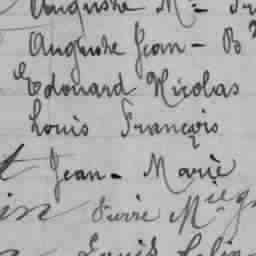 Auguste M
Auguste Jean - B
Edouard Nicolas
Louis François
Jean - Marie
Pierre M
Louis